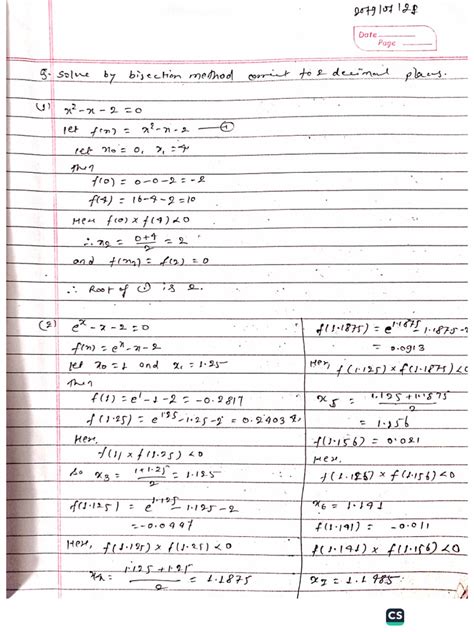 2079/01/28
Date
Page
Q. solve by bisection method correct to 2 decimal places.
(1) x²-x-2=0
let f(x) = x²-x-2 —①
let x₀=0, x₁=4
then
f(0) = 0-0-2=-2
f(4) = 16-4-2=10
Here f(0) x f(4)<0
∴ x₂ = (0+4)/2 = 2
and f(x₂) = f(2) = 0
∴ Root of ① is 2.
(2) eˣ-x-2=0
f(x) = eˣ-x-2
let x₀=1 and x₁=1.25
then
f(1) = e¹-1-2 = -0.2817
f(1.25) = e^1.25-1.25-2 = 0.2403
Here,
f(1) x f(1.25) <0
So x₃ = (1+1.25)/2 = 1.125
f(1.125) = e^1.125 - 1.125-2
=-0.0447
Here, f(1.125) x f(1.25)<0
x₄ = (1.125+1.25)/2 = 1.1875
f(1.1875) = e^1.1875-1.1875-2
= 0.0913
Here, f(1.125) x f(1.1875)<0
x₅ = (1.125+1.1875)/2
= 1.156
f(1.156) = 0.021
Here,
f(1.125) x f(1.156)<0
x₆ = 1.141
f(1.141) = -0.011
f(1.141) x f(1.156)<0
x₇ = 1.1485
CS